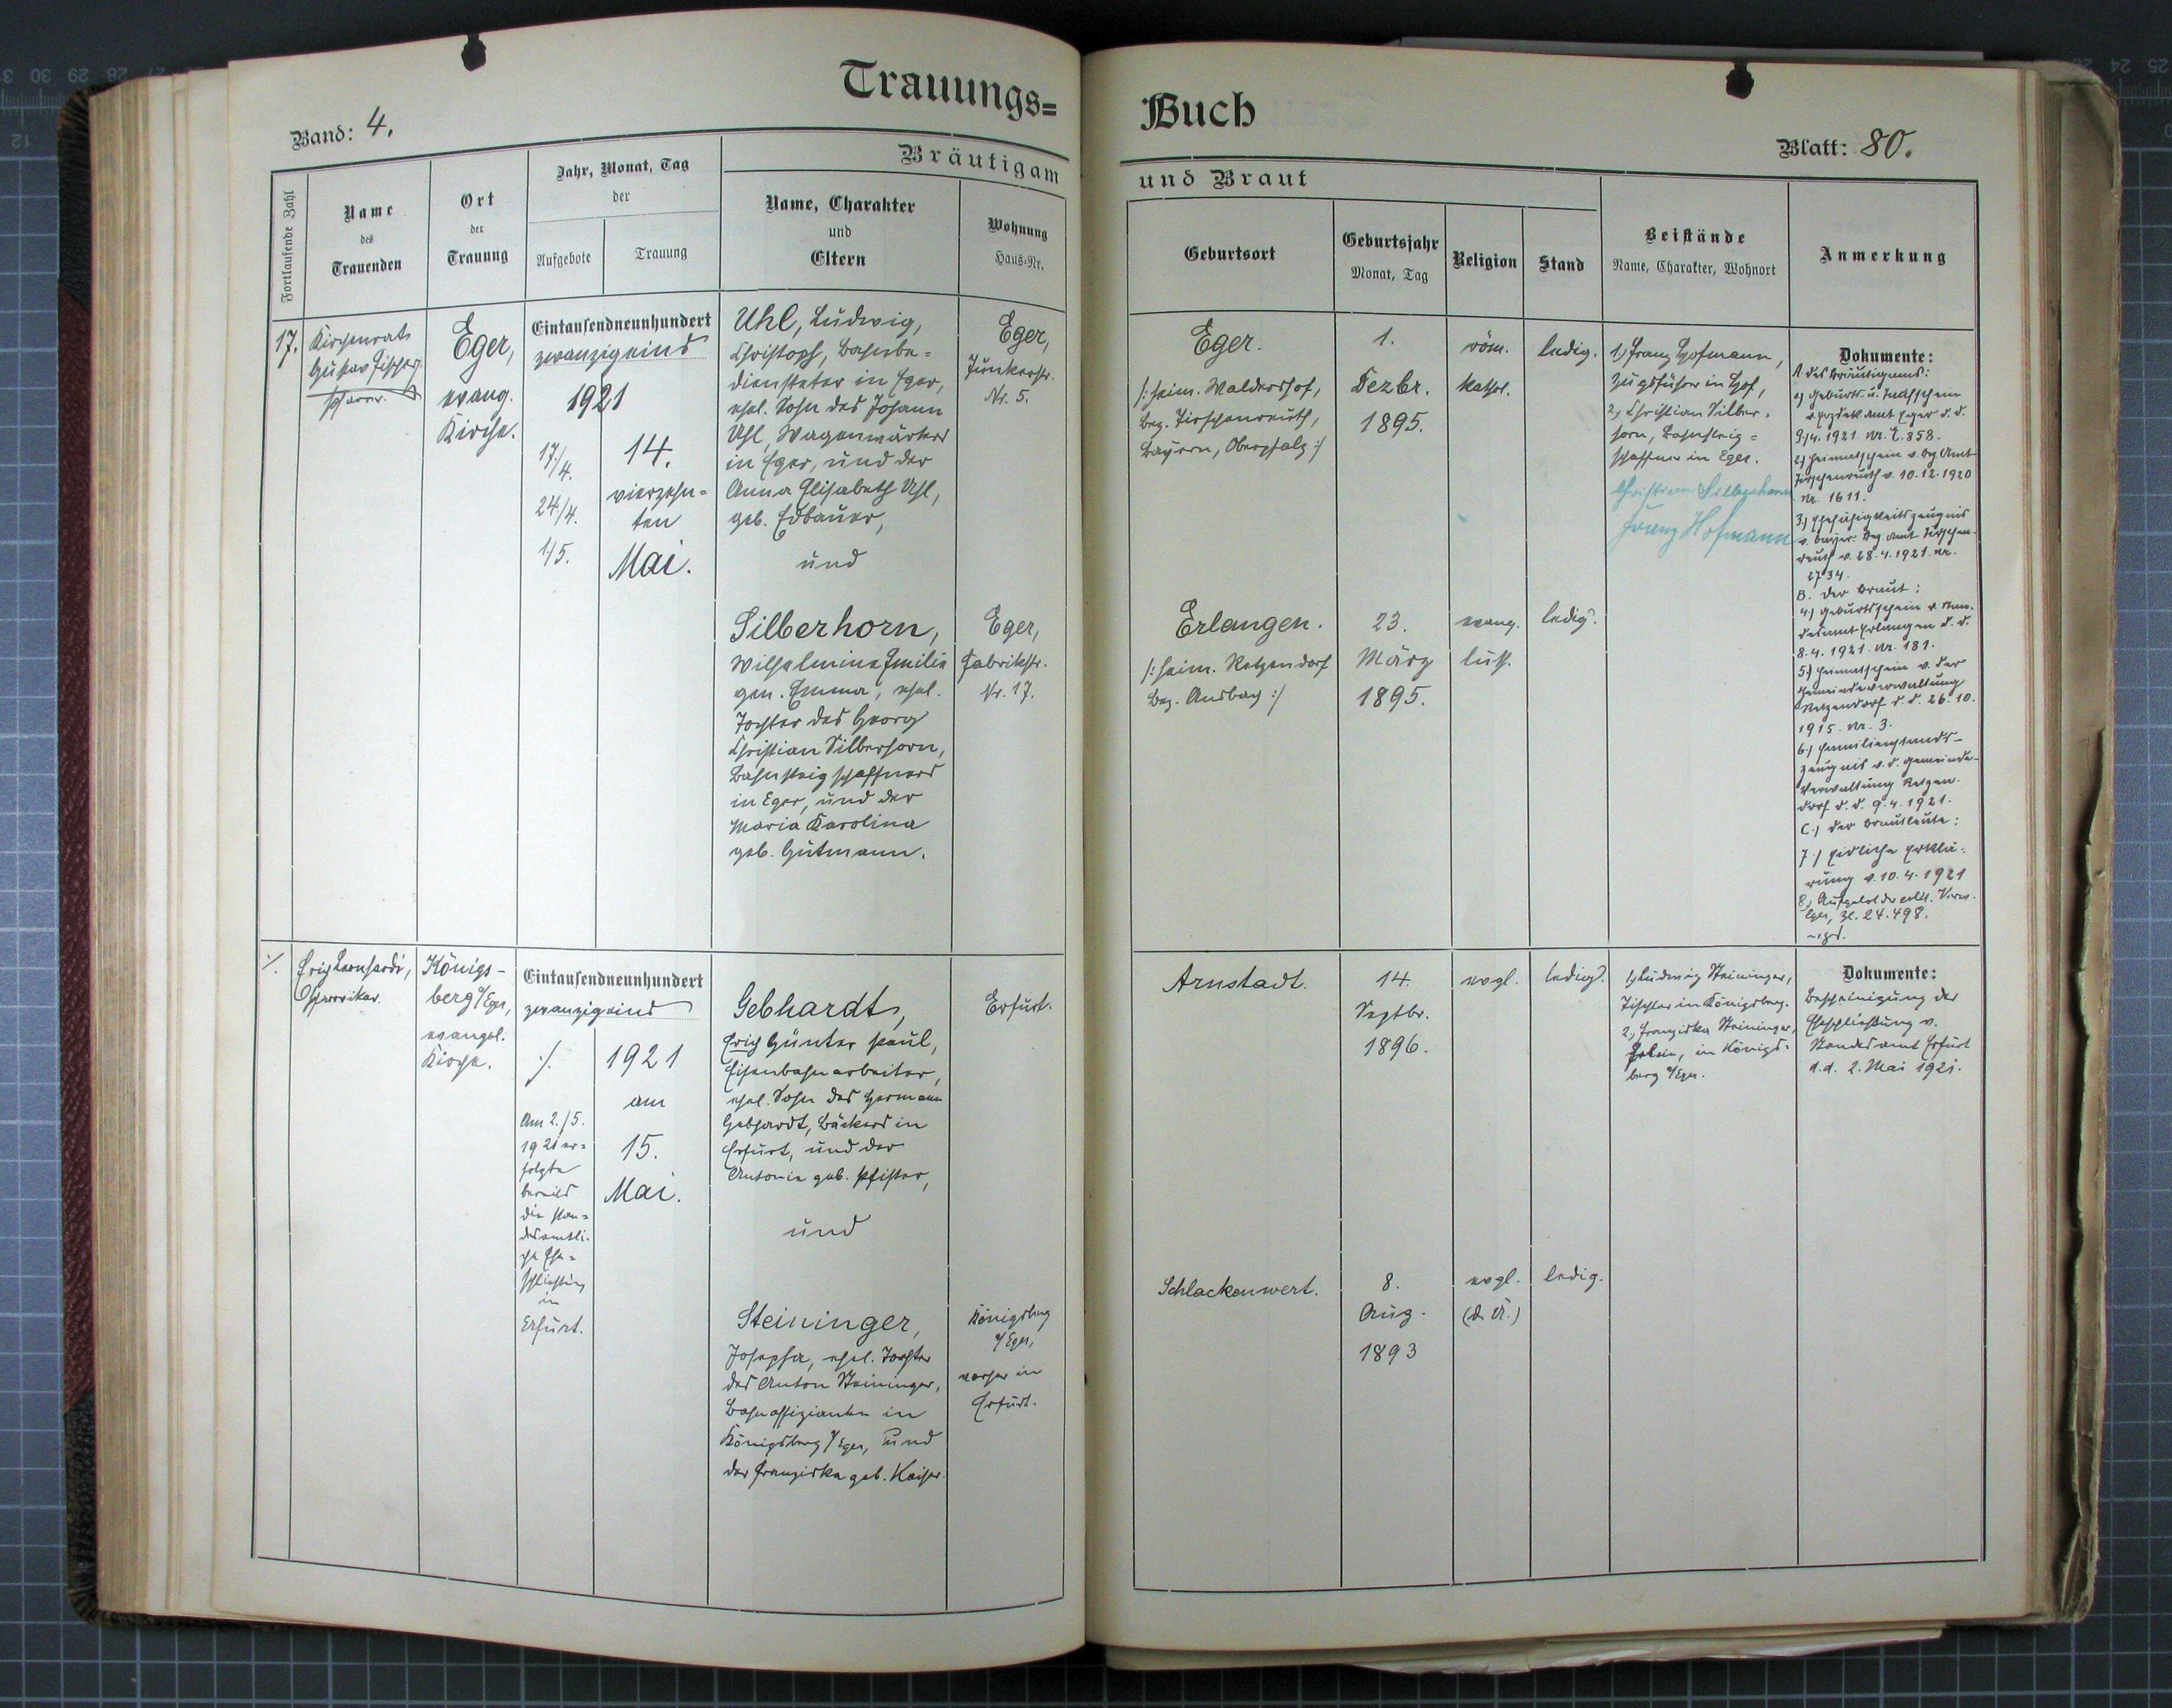 Trauungs=
Band: 4.
Fortlaufende Zahl
Name
des
Trauenden
Ort
der
Trauung
Jahr, Monat, Tag
der
Aufgebote
Trauung
Bräutigam
Name, Charakter
und
Eltern
Wohnung
Haus-Nr.
17.
Kirchenrat
Gustav Fischer
Pfarrer.
Eger,
evang.
Kirche.
Eintausendneunhundert
zwanzigeins
1921
17./4.
24./4.
1/5.
14.
vierzehn=
ten
Mai.
Uhl, Ludwig,
Christoph, Bahnbe=
diensteter in Eger,
ehel. Sohn des Johann
Uhl, Wagenwärters
in Eger, und der
Anna Elisabeth Uhl,
geb. Erbauer,
und
Eger,
Junkerstr.
Nr. 5.
Silberhorn,
Wilhelmine Emilie
gen. Emma, ehel.
Tochter des Georg
Christian Silberhorn,
Bahnsteigschaffners
in Eger, und der
Maria Karolina
geb. Gutmann.
Eger,
Fabrikstr.
Nr. 17.
·/.
Erich Leonhardi,
Pfarrvikar.
Königs-
berg a/Eger,
evangel.
Kirche.
Eintausendneunhundert
zwanzigeins
·/.
Am 2./5.
1921 er=
folgte
bereits
die stan=
desamtli-
che Ehe=
schließung
in
Erfurt.
1921
am
15.
Mai.
Gebhardt,
Erich Günter Paul,
Eisenbahnarbeiter,
ehel. Sohn des Hermann
Gebhardt, Bäckers in
Erfurt, und der
Antonie geb. Pfister,
und
Erfurt.
Steininger,
Josepha, ehel. Tochter
des Anton Steininger,
Bahnoffizianten in
Königsberg a/Eger, und
der Franziska geb. Kaiser.
Königsberg
a/Eger,
vorher in
Erfurt.
Buch
Blatt: 80.
und Braut
Geburtsort
Geburtsjahr
Monat, Tag
Religion
Stand
Beistände
Name, Charakter, Wohnort
Anmerkung
Eger.
/: heim. Waldershof,
Bez. Tirschenreuth,
Bayern, Oberpfalz :/
1.
Dezbr.
1895.
röm.
kathol.
ledig.
1.) Franz Hofmann,
Zugsführer in Hof,
2.) Christian Silber-
horn, Bahnsteig=
schaffner in Eger.
Christian Silberhorn
Franz Hofmann
Dokumente:
A. des Bräutigams:
1) Geburts- u. Taufschein
v. Erzdek. Amt Eger d. d.
9./4. 1921. Nr. E. 858.
2.) Heimatschein v. Bez. Amt
Tirschenreuth v. 10.12.1920
Nr. 1611.
3.) Ehefähigkeitszeugnis
v. bayer. Bez. Amt Tirschen-
reuth v. 28.4.1921. Nr.
2734.
B. der Braut:
4.) Geburtsschein v. Stan-
desamt Erlangen d. d.
8.4.1921. Nr. 181.
5.) Heimatschein v. der
Gemeindeverwaltung
Retzendorf d. d. 26.10.
1915. Nr. 3.
6.) Familienstands-
zeugnis v. d. Gemeinde-
verwaltung Retzen-
dorf d. d. 9.4.1921.
C.) der Brautleute:
7.) Eidliche Erklä-
rung v. 10.4.1921
8.) Aufgebot der
Eger, Zl. 24.498.
Erlangen.
/: heim. Retzendorf
Bez. Ansbach :/
23.
März
1895.
evang.
luth.
ledig.
Arnstadt.
14.
Septbr.
1896.
evgl.
ledig.
1.) Ludwig Steininger,
Tischler in Königsberg.
2.) Franziska Steininger,
in Königs-
berg a/Eger.
Dokumente:
Bescheinigung der
Eheschließung v.
Standesamt Erfurt
d.d. 2. Mai 1921.
Schlackenwert.
8.
Aug.
1893
evgl.
(d. Ü.)
ledig.